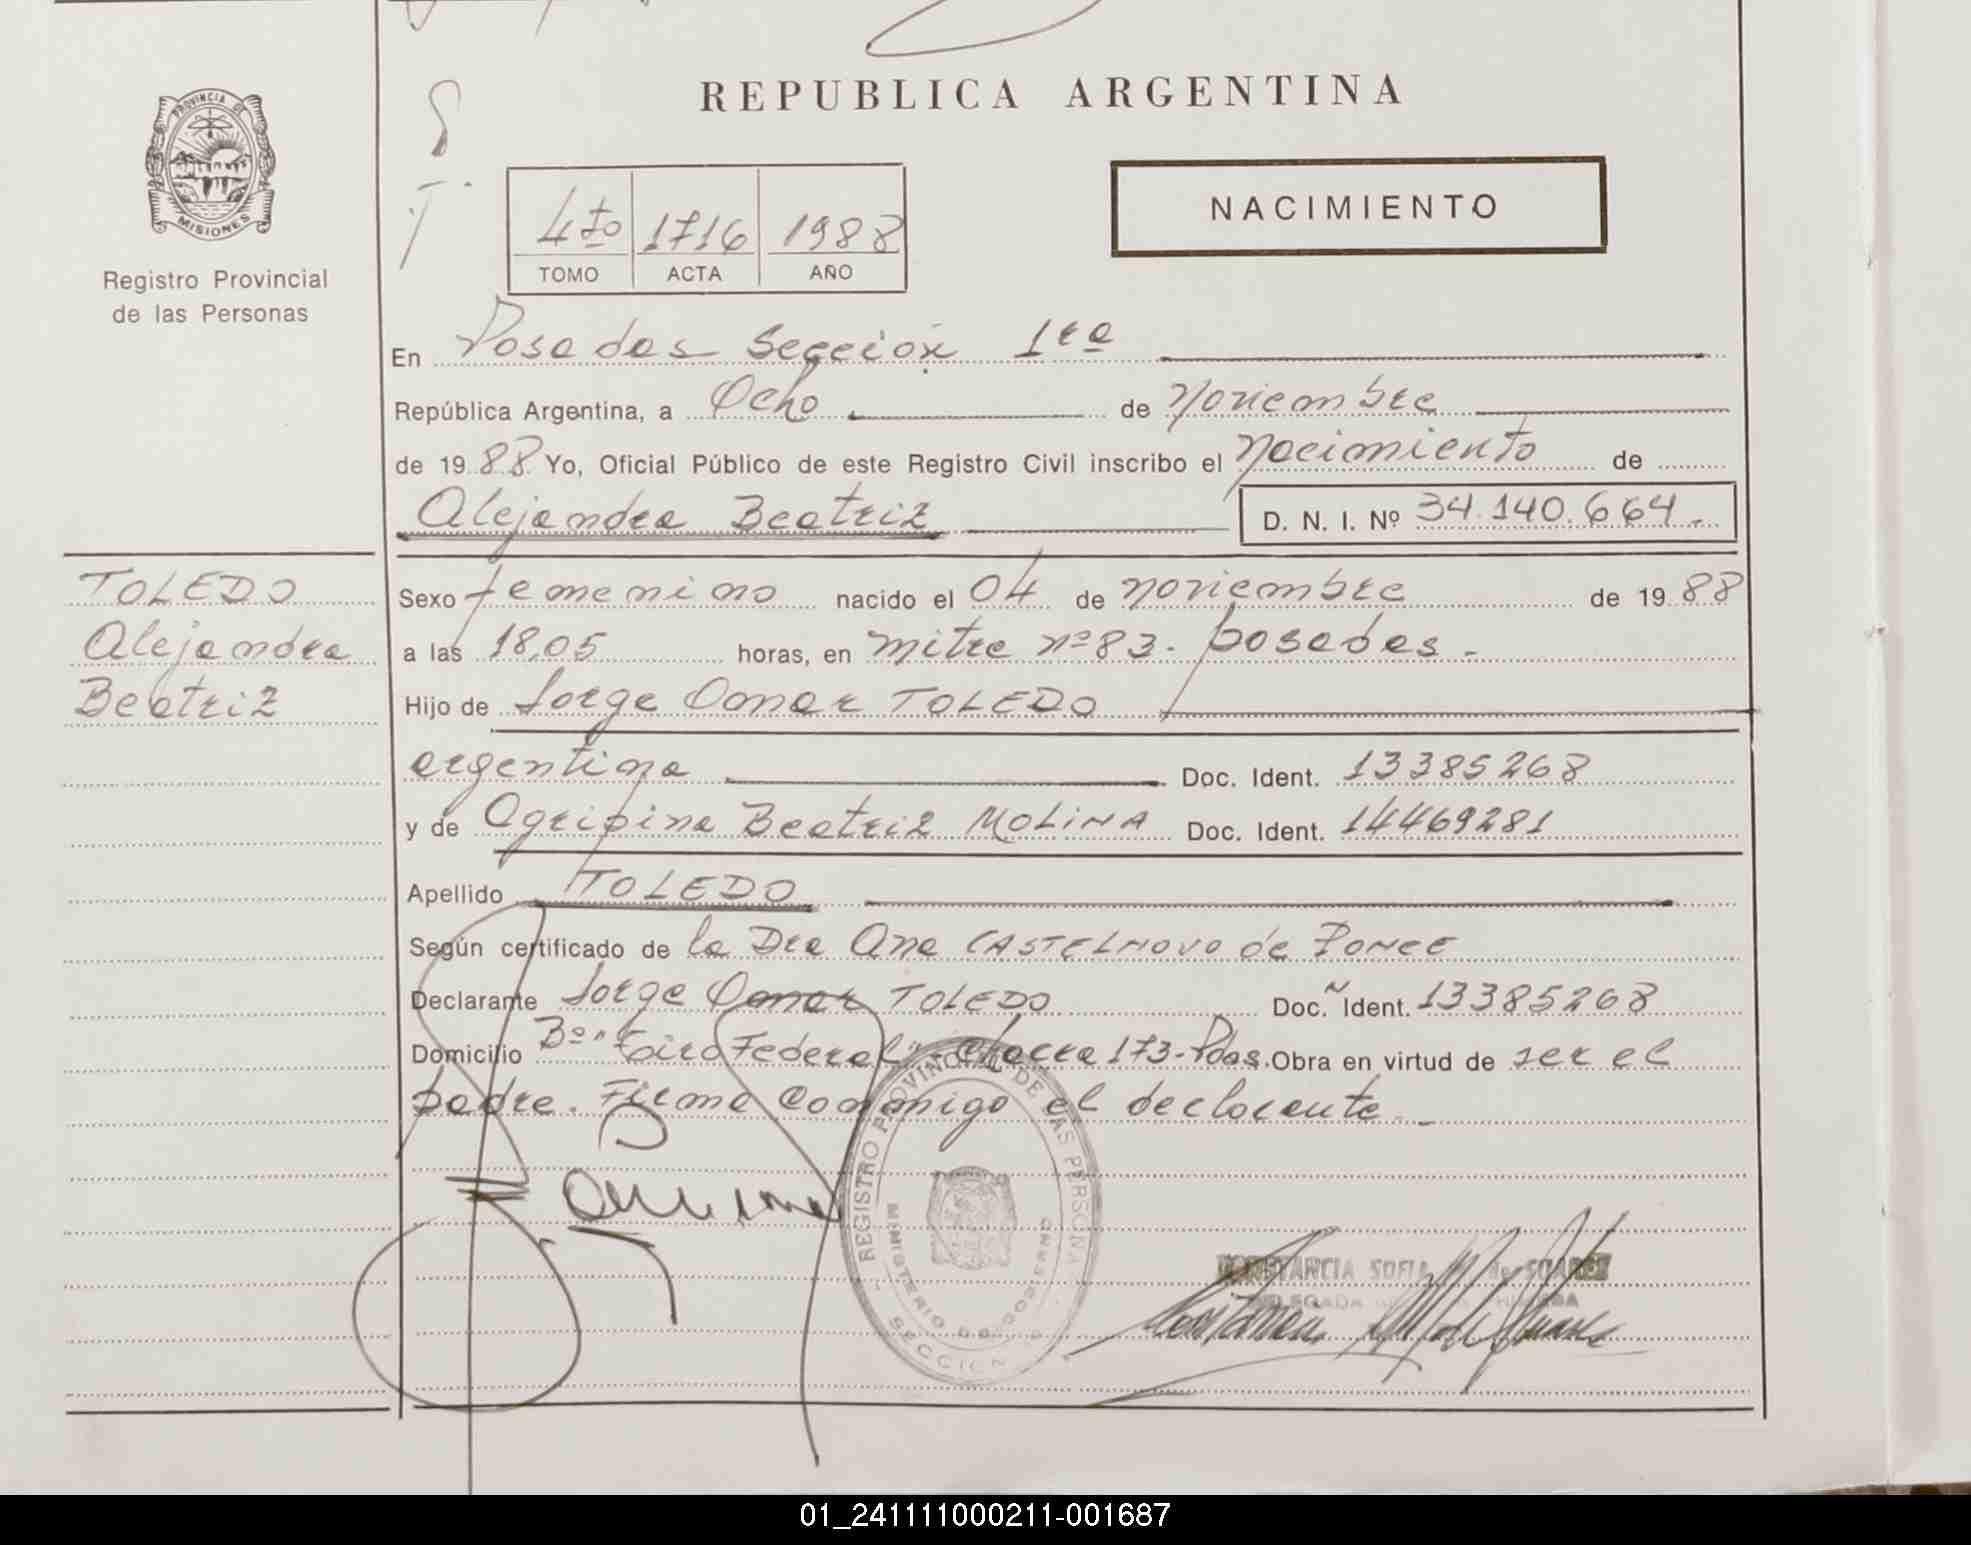 REPUBLICA ARGENTINA
PROVINCIA DE
MISIONES
Registro Provincial
de las Personas
4to 1716 1988
TOMO ACTA AÑO
NACIMIENTO
En Posadas Sección 1ra
República Argentina, a Ocho de Noviembre
de 1988 Yo, Oficial Público de este Registro Civil inscribo el Nacimiento de
Alejandra Beatriz D. N. I. Nº 34.140.664.-
TOLEDO
Alejandra
Beatriz
Sexo femenino nacido el 04 de noviembre de 1988
a las 18,05 horas, en mitre nº 83. posadas.-
Hijo de Jorge Omar TOLEDO
argentina Doc. Ident. 13385268
y de Agripina Beatriz MOLINA Doc. Ident. 14469281
Apellido TOLEDO
Según certificado de la Dra Ana CASTELNOVO de PONCE
Declarante Jorge Omar TOLEDO Doc. Ident. 13385268
Domicilio Bº "Tiro Federal"- Chacra 173-Pdas. Obra en virtud de ser el
padre. Firma conmigo el declarante.-
REGISTRO PROVINCIAL DE LAS PERSONAS
MINISTERIO DE GOBIERNO
SECCION
CONSTANCIA SOFIA M. de SUAREZ
DELEGADA
01_241111000211-001687